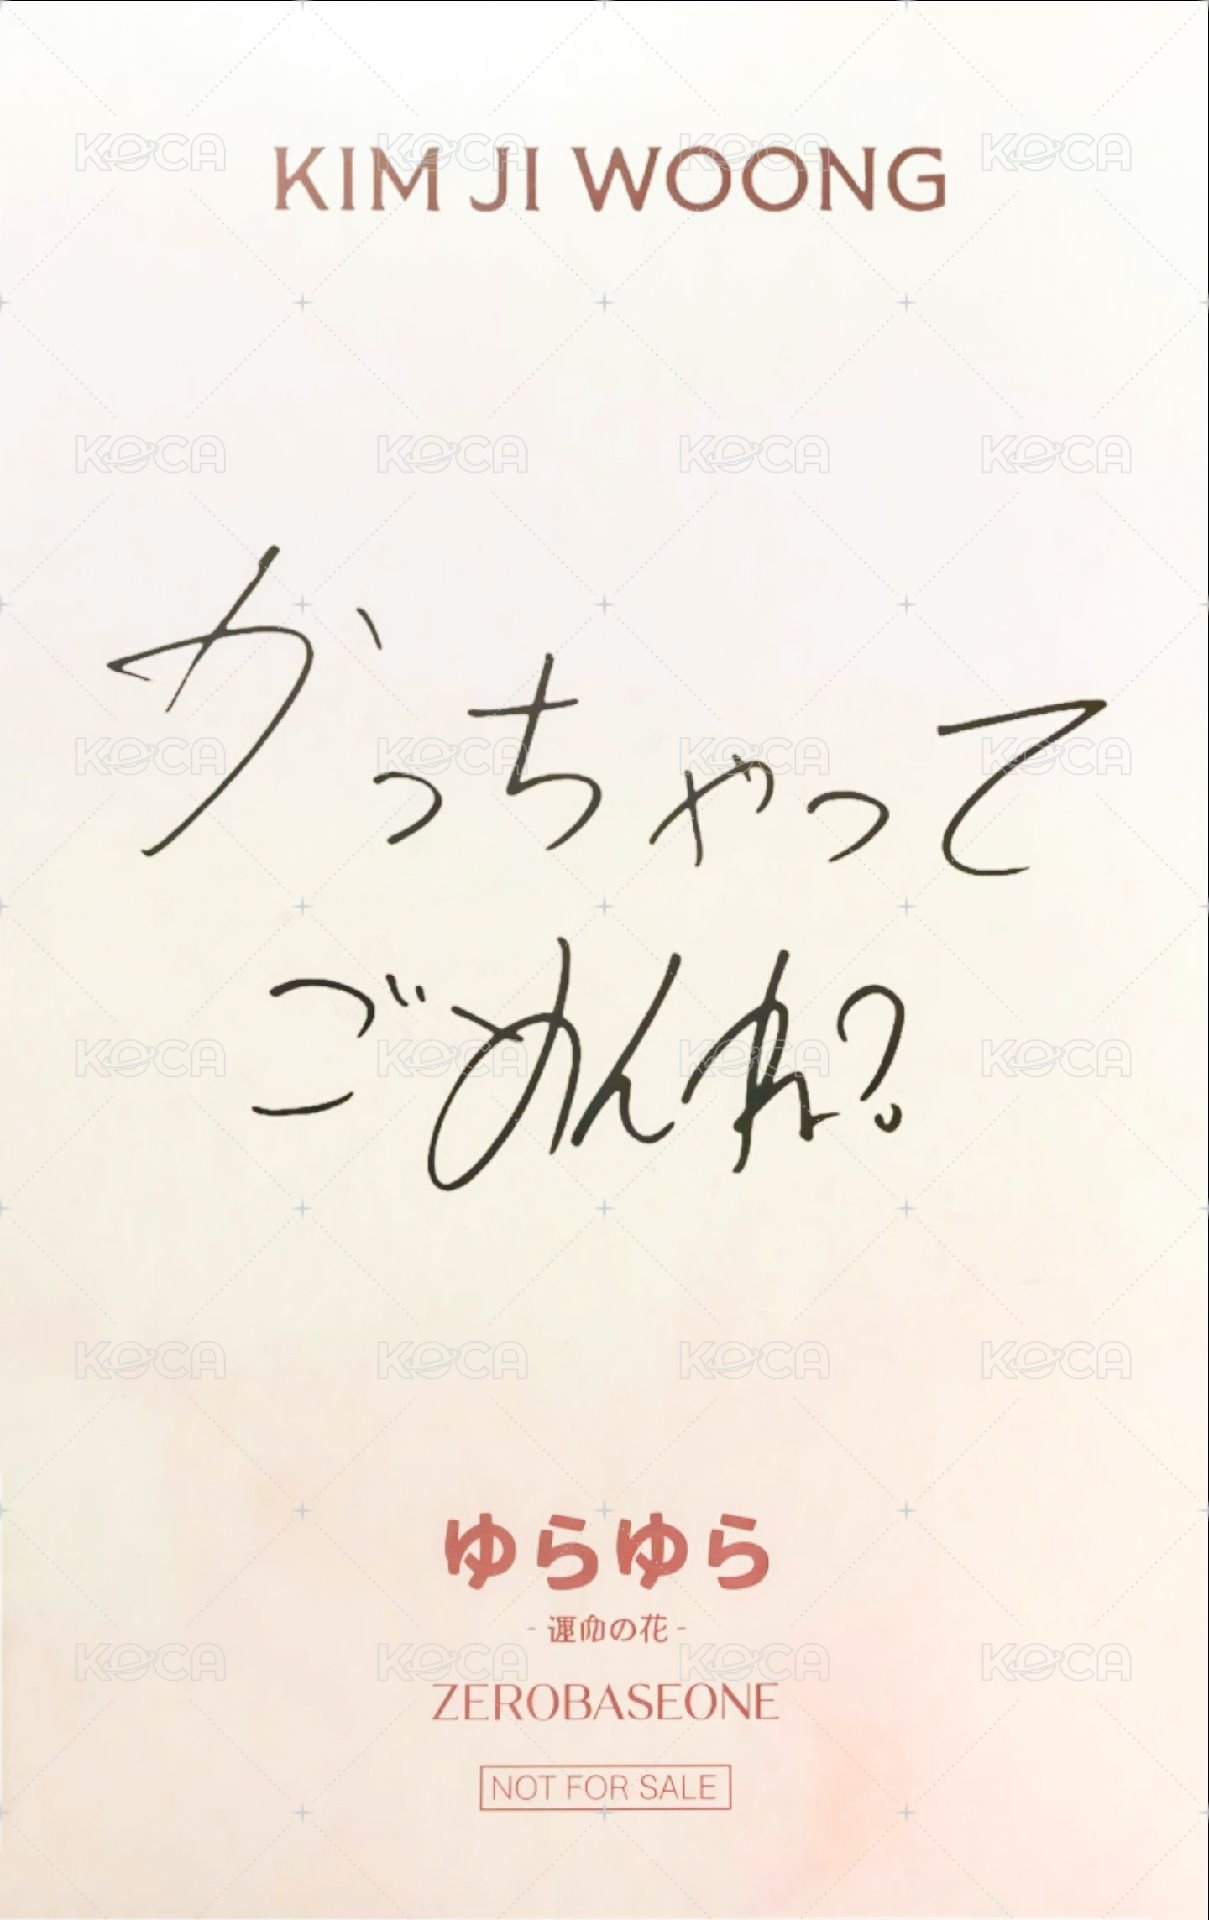 KIM JI WOONG
かっちゃって
ごめんね?
ゆらゆら
- 運命の花 -
ZEROBASEONE
NOT FOR SALE
KOCA